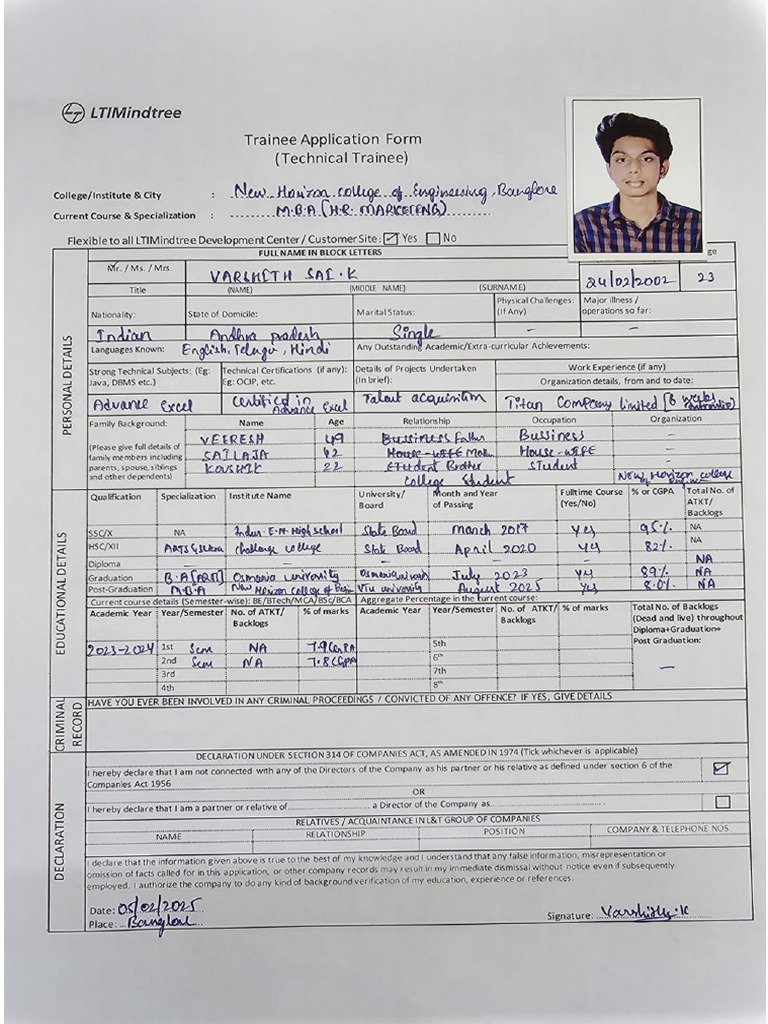 LTIMindtree
Trainee Application Form
(Technical Trainee)
College/Institute & City : New Horizon college of Engineering, Banglore
Current Course & Specialization : M.B.A (H.R. MARKETENG)
Flexible to all LTIMindtree Development Center / Customer Site: Yes No
FULL NAME IN BLOCK LETTERS ge
Mr. / Ms. / Mrs. VARSHITH SAI.K 24/02/2002 23
Title (NAME) (MIDDLE NAME) (SURNAME)
PERSONAL DETAILS
Nationality: State of Domicile: Marital Status: Physical Challenges: (If Any) Major illness / operations so far:
Indian Andhra pradesh Single - -
Languages Known: English, Telugu, Hindi Any Outstanding Academic/Extra-curricular Achievements:
Strong Technical Subjects: (Eg: Java, DBMS etc.) Technical Certifications (if any): Eg: OCJP, etc. Details of Projects Undertaken (In brief): Work Experience (if any)
Organization details, from and to date:
Advance Excel Certified in Advance Excel Talent acquisition Titan Company Limited [6 weeks
Family Background: Name Age Relationship Occupation Organization
(Please give full details of family members including parents, spouse, siblings and other dependents)
VEERESH 49 Bussiness Father Bussiness -
SAILAJA 42 House-WIFE House-WIFE -
KOUSHIK 22 Student Brother Student New Horizon college
College Student
EDUCATIONAL DETAILS
Qualification Specialization Institute Name University/ Board Month and Year of Passing Fulltime Course (Yes/No) % or CGPA Total No. of ATKT/ Backlogs
SSC/X NA Indus E.M. High school State Board March 2017 yes 95% NA
HSC/XII challenge college State Board April 2020 yes 82% NA
Diploma - - - - - - NA
Graduation B.A [ART] Osmania university July 2023 yes 89% NA
Post-Graduation M.B.A New Horizon College of Vtu university August 2025 yes 8.0% NA
Current course details (Semester-wise): BE/BTech/MCA/BSc/BCA Aggregate Percentage in the current course:
Academic Year Year/Semester No. of ATKT/ Backlogs % of marks Academic Year Year/Semester No. of ATKT/ Backlogs % of marks Total No. of Backlogs (Dead and live) throughout Diploma+Graduation+ Post Graduation:
2023-2024 1st Sem NA 7.9 CGPA 5th
2nd Sem NA 7.8 CGPA 6th -
3rd 7th
4th 8th
CRIMINAL RECORD
HAVE YOU EVER BEEN INVOLVED IN ANY CRIMINAL PROCEEDINGS / CONVICTED OF ANY OFFENCE? IF YES, GIVE DETAILS
DECLARATION
DECLARATION UNDER SECTION 314 OF COMPANIES ACT, AS AMENDED IN 1974 (Tick whichever is applicable)
I hereby declare that I am not connected with any of the Directors of the Company as his partner or his relative as defined under section 6 of the
Companies Act 1956
OR
I hereby declare that I am a partner or relative of.......... a Director of the Company as..........
RELATIVES / ACQUAINTANCE IN L&T GROUP OF COMPANIES
NAME RELATIONSHIP POSITION COMPANY & TELEPHONE NOS.
I declare that the information given above is true to the best of my knowledge and I understand that any false information, misrepresentation or
omission of facts called for in this application, or other company records may result in my immediate dismissal without notice even if subsequently
employed. I authorize the company to do any kind of background verification of my education, experience or references.
Date: 05/02/2025
Place: Banglore Signature: Varshith.K